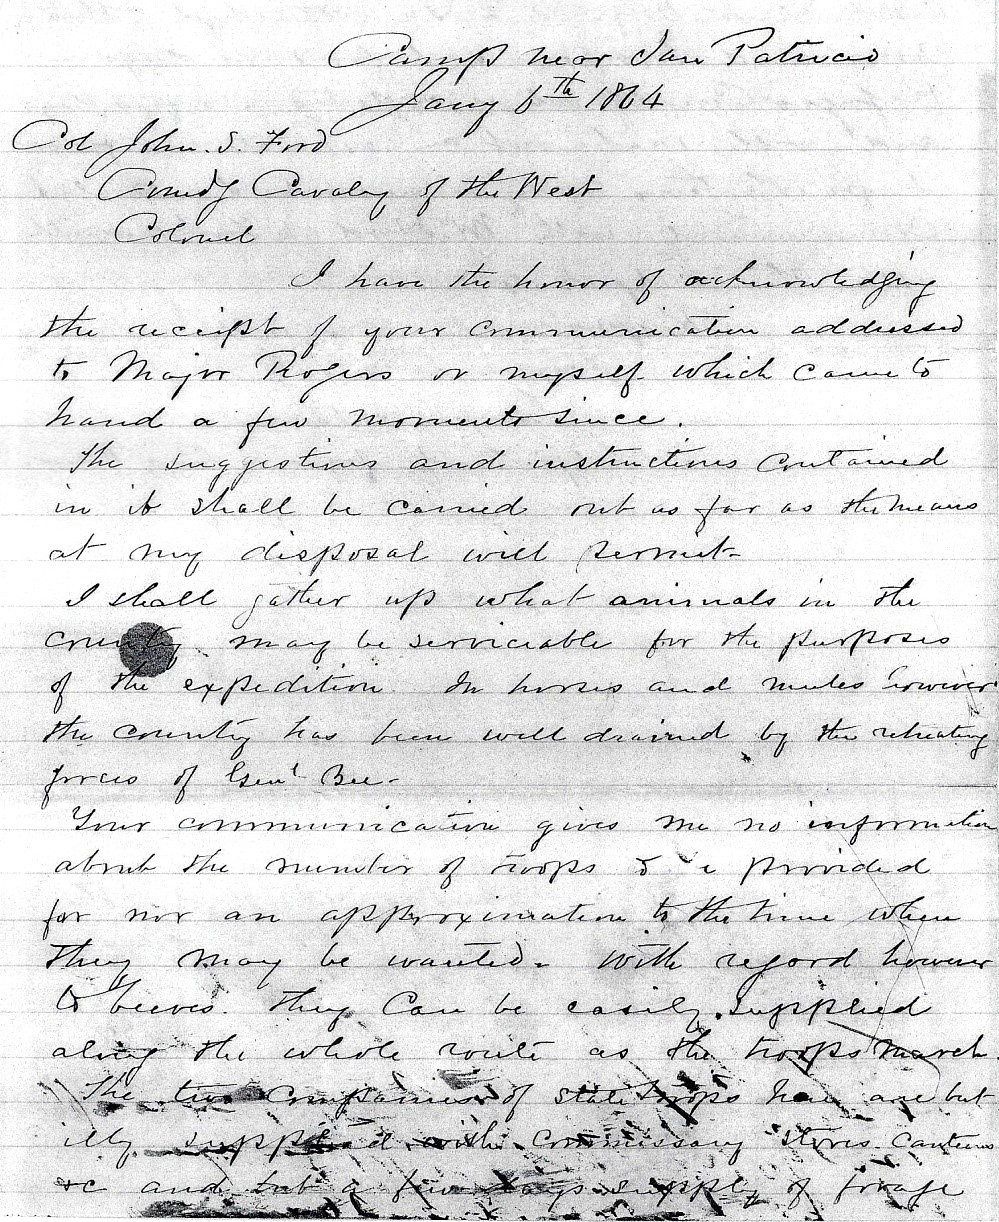 Camp near San Patricio
Jany 6th 1864
Col John. S. Ford
Comdg Cavalry of the West
Colonel
I have the honor of acknowledging
the receipt of your communication addressed
to Major Rogers or myself which came to
hand a few moments since.
The suggestions and instructions contained
in it shall be carried out as far as the means
at my disposal will permit-
I shall gather up what animals in the
county may be serviceable for the purposes
of the expedition. In horses and mules however
the country has been well drained by the retreating
forces of Genl Bee-
Your communication gives me no information
about the number of troops to be provided
for nor an approximation to the time when
they may be wanted- With regard however
to beeves. they can be easily supplied
along the whole route as the troops march.
The two companies of State troops here are but
illy supplied with commissary stores canteens
&c and but a few days supply of forage